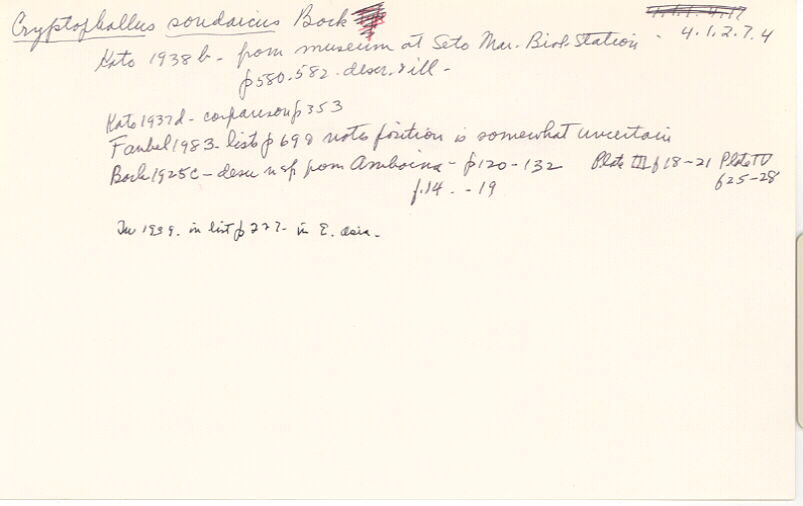 Cryptophallus sondaicus Bock
4.1.2.7.4
Kato 1938 b - from museum at Seto Mar. Biol. Station -
p580-582. descr. & ill -
Kato 1937d - comparison p 353
Faubel 1983 - list p 698 notes position is somewhat uncertain
Bock 1925c - descr n sp from Amboina - p120-132 Plate III f 18-21 Plate IV
f.14 - 19 f25-28
1939. in list p 227 - in E. Asia -